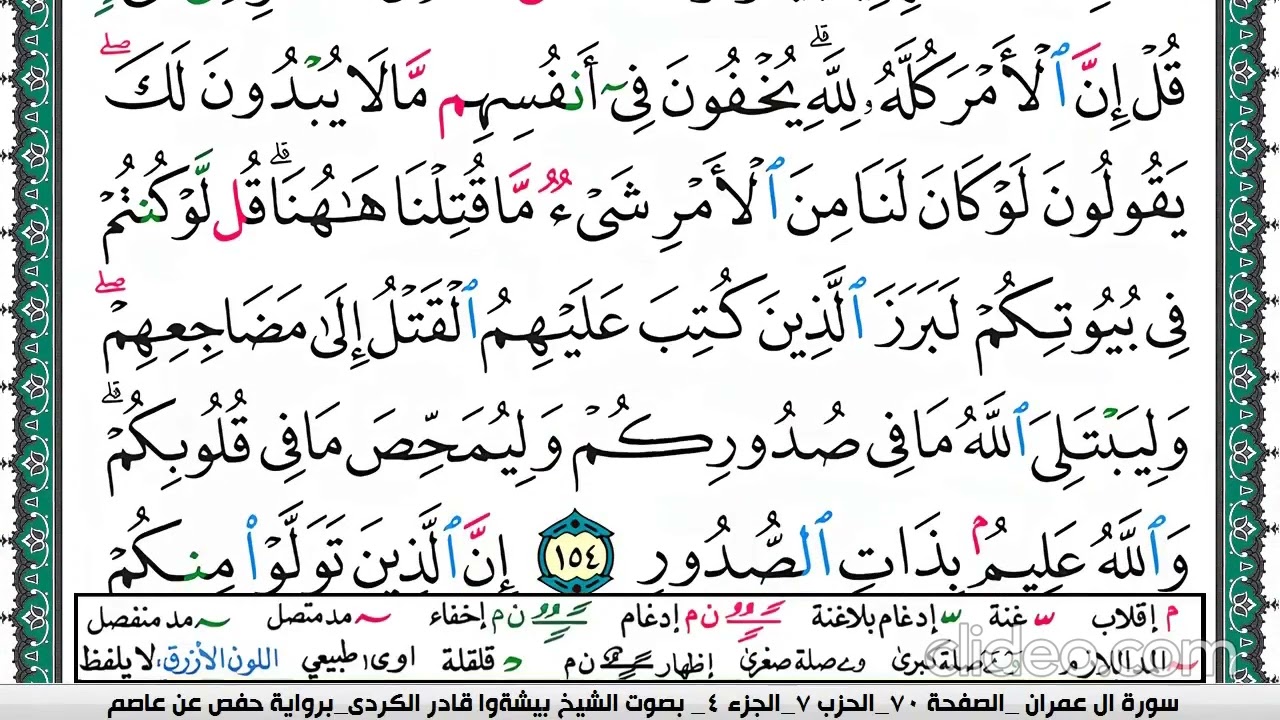 قُلْ إِنَّ ٱلْأَمْرَ كُلَّهُۥ لِلَّهِ ۗ يُخْفُونَ فِىٓ أَنفُسِهِم مَّا لَا يُبْدُونَ لَكَ ۖ
يَقُولُونَ لَوْ كَانَ لَنَا مِنَ ٱلْأَمْرِ شَىْءٌ مَّا قُتِلْنَا هَـٰهُنَا ۗ قُل لَّوْ كُنتُمْ
فِى بُيُوتِكُمْ لَبَرَزَ ٱلَّذِينَ كُتِبَ عَلَيْهِمُ ٱلْقَتْلُ إِلَىٰ مَضَاجِعِهِمْ ۖ
وَلِيَبْتَلِىَ ٱللَّهُ مَا فِى صُدُورِكُمْ وَلِيُمَحِّصَ مَا فِى قُلُوبِكُمْ ۗ
وَٱللَّهُ عَلِيمٌۢ بِذَاتِ ٱلصُّدُورِ ١٥٤ إِنَّ ٱلَّذِينَ تَوَلَّوْا۟ مِنكُمْ
م إقلاب غنة إدغام بلاغنة ن م إدغام ن م إخفاء مد متصل مد منفصل
المد اللازم و ے صلة كبرى و ے صلة صغرى إظهار ن م قلقلة اوى طبيعي اللون الأزرق، لا يلفظ
clideo.com
سورة ال عمران _الصفحة ٧٠_الحزب ٧_الجزء ٤_ بصوت الشيخ بيشةوا قادر الكردى_برواية حفص عن عاصم